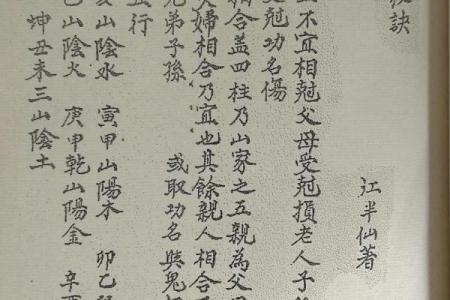 秘訣
江半仙著
不宜相尅父母受尅損老人子
尅功名傷
相合盖四柱乃山家之五親為父
夫婦相合乃宜也其餘親人相合
兄弟子孫　或取功名與鬼
五行
亥山陰水　寅甲山陽木　卯乙
巳山陰火　庚申乾山陽金　辛酉
坤丑未三山陰土